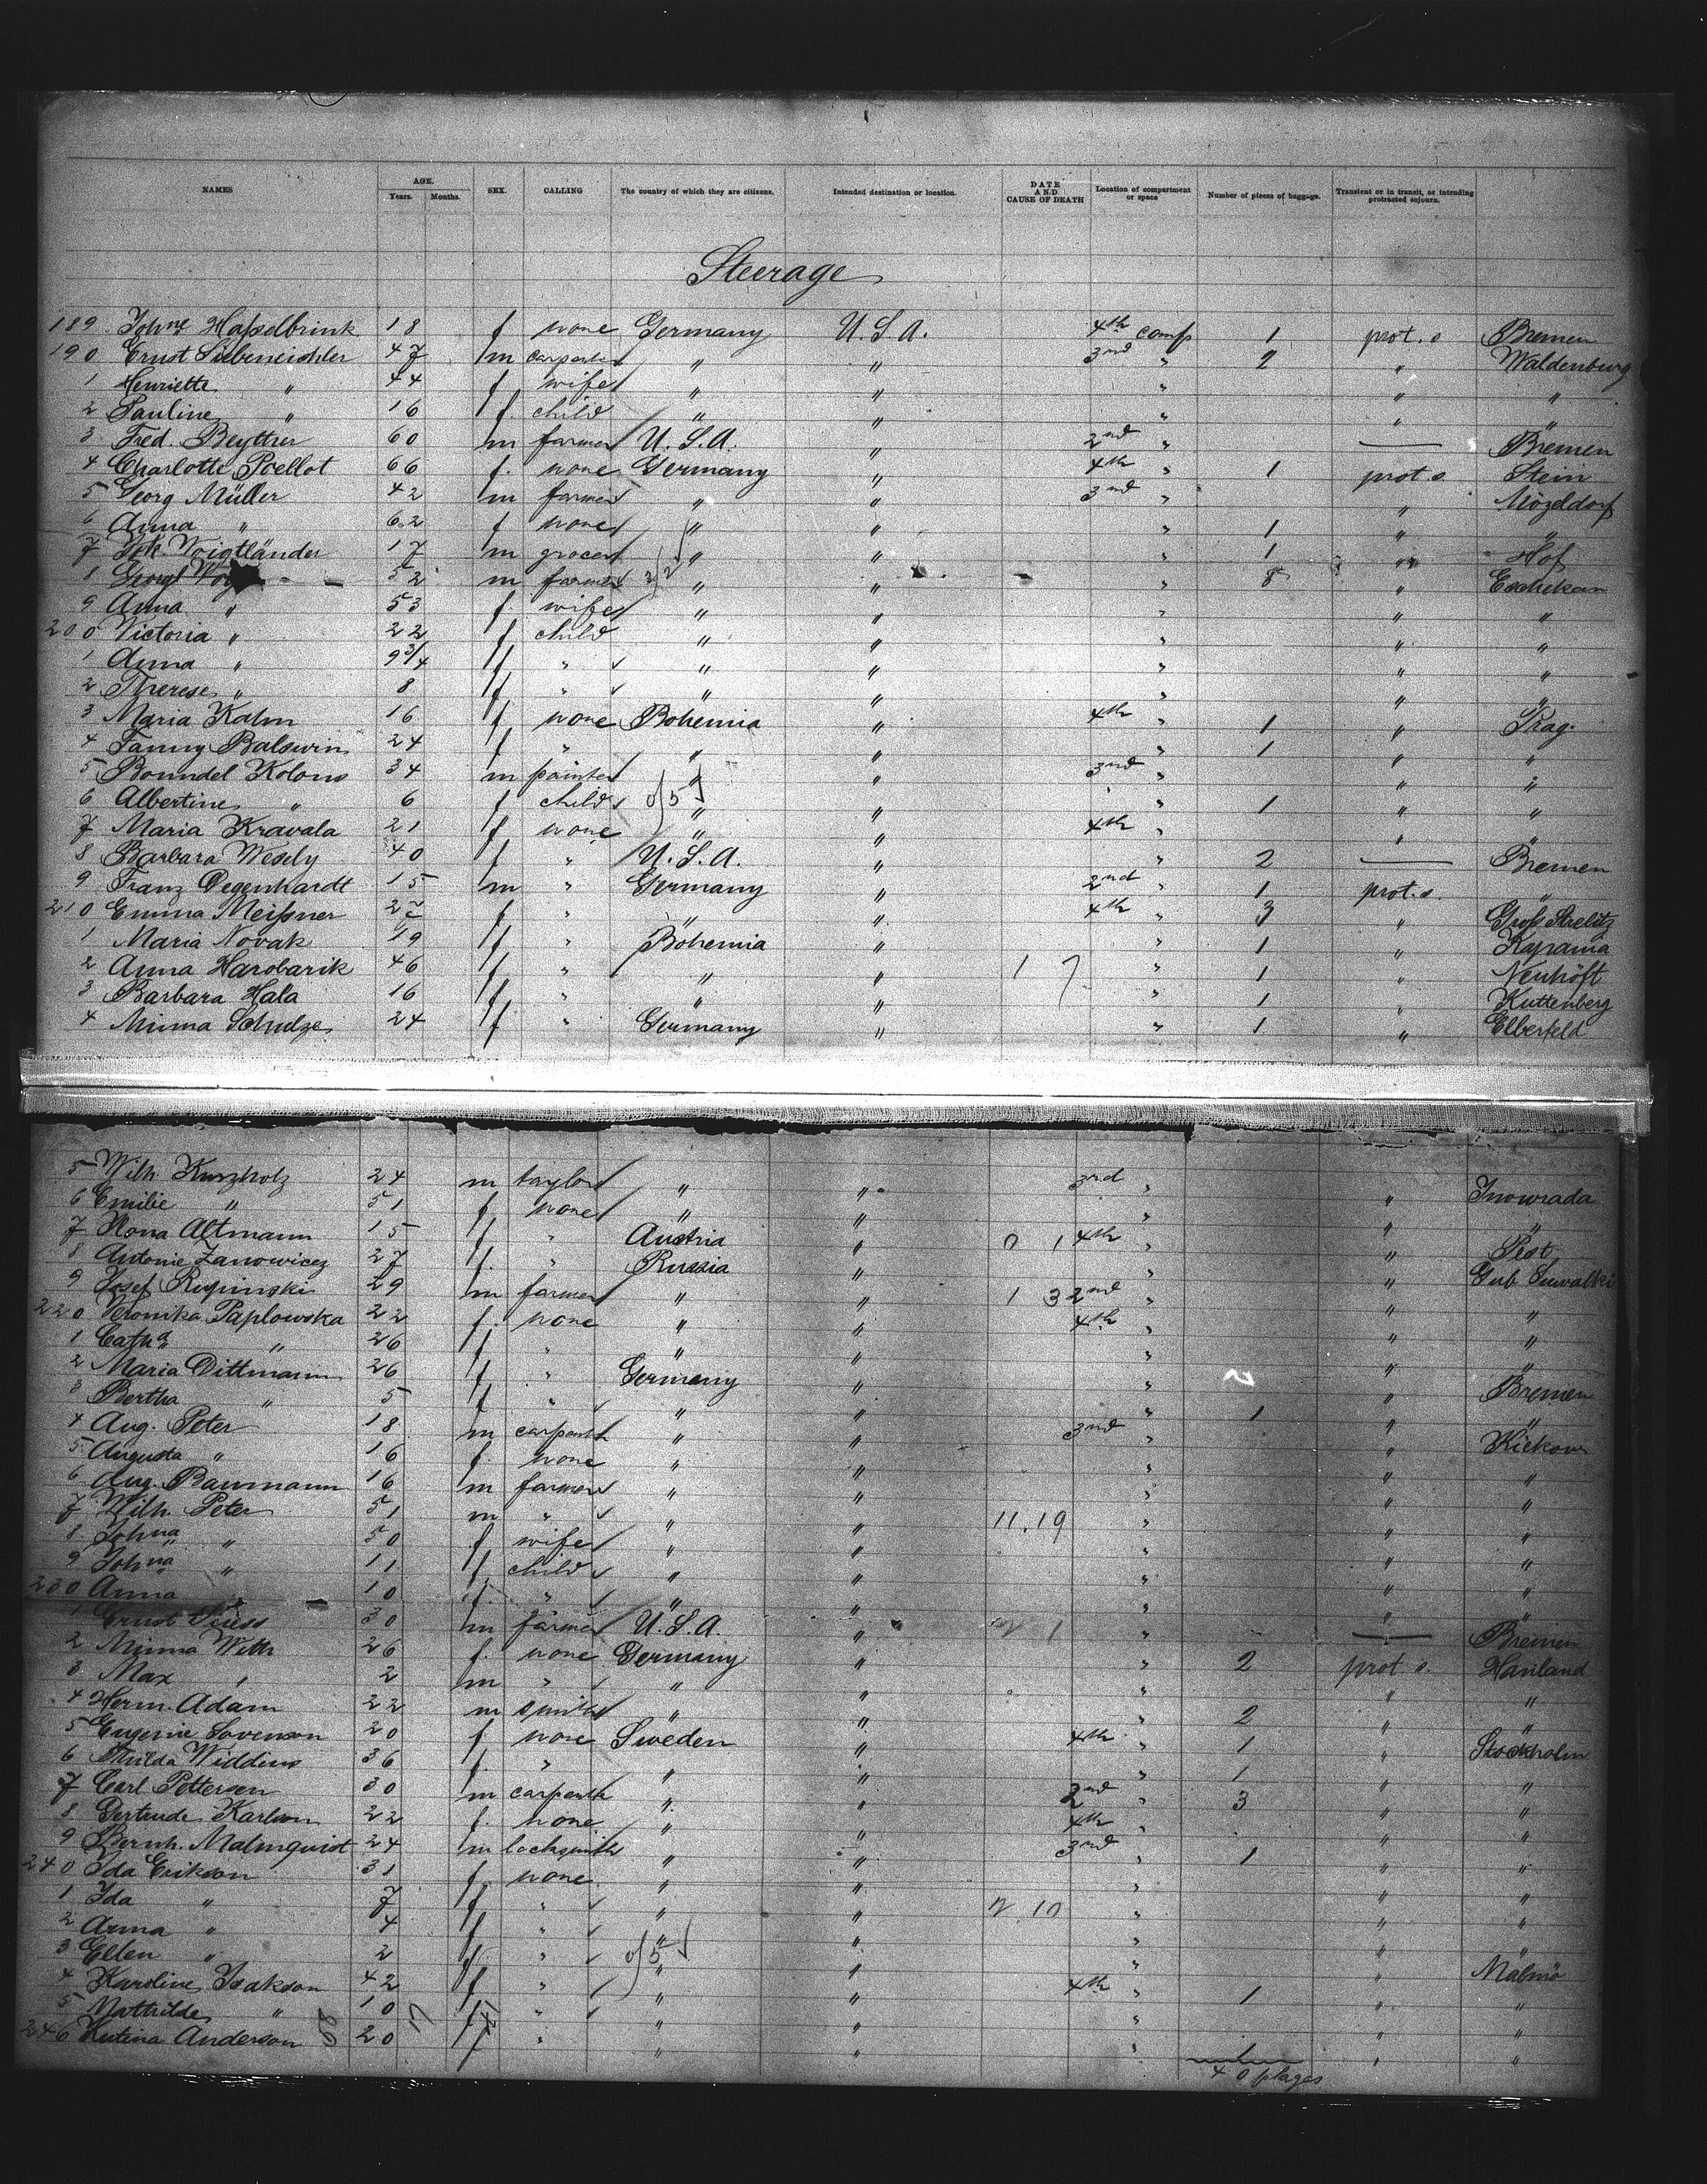 NAMES AGE. Years. Months. SEX. CALLING The country of which they are citizens. Intended destination or location. DATE AND CAUSE OF DEATH Location of compartment or space Number of pieces of baggage. Transient or in transit, or intending protracted sojourn.
Steerage
189 Johne Haßelbrink 18 f none Germany U.S.A. 4th comp 1 prot. s Bremen
190 Ernst Siebeneichler 47 m carpenter " " 3rd " 2 " Waldenburg
1 Henriette " 44 f wife " " " " "
2 Pauline " 16 f child " " " " "
3 Fred. Beyttrer 60 m farmer U.S.A. " 2nd " — Bremen
4 Charlotte Poellot 66 f. none Germany " 4th " 1 prot. s. Stein
5 Georg Müller 42 m farmer " " 3rd " " Mözeldorf
6 Anna " 62 f none " " " 1 " "
7 Joh Voigtländer 17 m grocer " " " 1 " Hof
1 Georg 52 m farmer " " " 8 "
9 Anna " 53 f. wife " " " " "
200 Victoria " 22 f child " " " " "
1 Anna " 9 3/4 f " " " " " "
2 Therese " 8 f " " " " " "
3 Maria Kahn 16 f none Bohemia " 4th " 1 " Prag.
4 Fanny Balswin 24 f " " " " 1 " "
5 Bomndel Kolons 34 m painter " " 3rd " " "
6 Albertine " 6 f child " " " 1 " "
7 Maria Kravala 21 f none " " 4th " " "
8 Barbara Wesely 40 f " U.S.A. " " 2 — Bremen
9 Franz Degenhardt 15 m " Germany " 2nd " 1 prot. s. "
210 Emma Meißner 27 f " " " 4th " 3 " Groß Strelitz
1 Maria Novak 19 f " Bohemia " " 1 " Kapania
2 Anna Harobarik 46 f " " " 1 7 " 1 " Neuhöft
3 Barbara Hala 16 f " " " " 1 " Kuttenberg
4 Minna Schulze 24 f " Germany " " 1 " Elberfeld
5 Wilh. Kurzholz 24 m taylor " " 3rd " " Inowrada
6 Emilie " 51 f none " " " " "
7 Ilona Altmann 15 f " Austria " 0 1 4th " " Pest
8 Antonie Zanowicz 27 f. " Russia " " " Gub Suwalki
9 Josef Rupinski 29 m farmer " " 1 3 2nd " " "
220 Veronika Paplowska 22 f. none " " 4th " " "
1 Catha " 26 f " " " " " "
2 Maria Dittmann 26 f " Germany " " " Bremen
3 Bertha " 5 f " " " " 1 " "
4 Aug. Peter 18 m carpenter " " 3rd " " Kickow
5 Augusta " 16 f. none " " " " "
6 Aug. Baumann 16 m farmer " " " " "
7 Wilh. Peter 51 m " " " 11.19 " " "
8 Johna " 50 f wife " " " " "
9 Johna " 11 f child " " " " "
230 Anna 10 f. " " " " " "
1 Ernst Suess 30 m farmer U.S.A. " " — Bremen
2 Minna With 26 f. none Germany " " 2 prot s. Hanland
3 Max " 2 m " " " " " "
4 Herm. Adam 22 m smith " " " 2 " "
5 Eugenie Sovenson 20 f none Sweden " 4th " 1 " Stockholm
6 Thilda Widdins 36 f. " " " " 1 " "
7 Carl Pettersen 30 m carpenter " " 2nd " 3 " "
8 Gertrude Karlson 22 f. none " " 4th " " "
9 Bernh. Malmquist 24 m locksmith " " 3rd " 1 " "
240 Ida Erikson 31 f. none " " " " "
1 Ida " 7 f. " " " " " "
2 Anna " 4 f " " " " " "
3 Ellen " 2 f. " " " " " "
4 Karoline Isakson 42 f " " " 4th " 1 " Malmö
5 Mathilde " 10 f " " " " " "
246 Kutina Anderson 20 f " " " " " "
40 plages